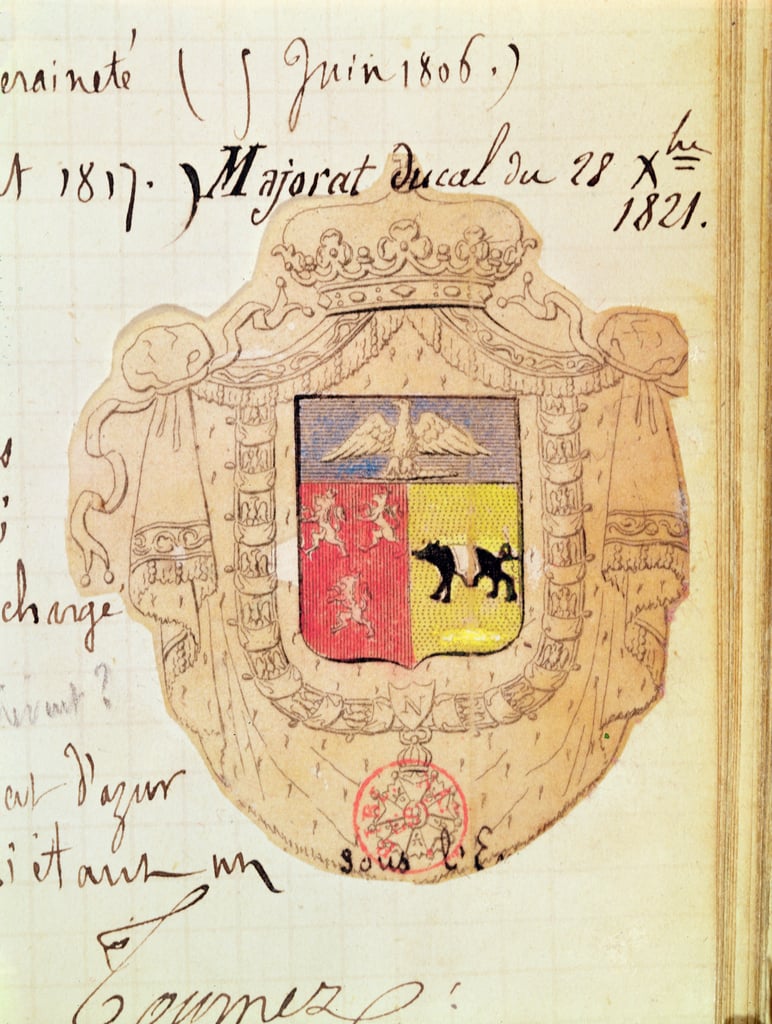 eraineté (5 Juin 1806.)
t 1817.) Majorat ducal du 28 Xbre
1821.
charge
N
at d'azur
s'étant un
sous l'E
Tournez :